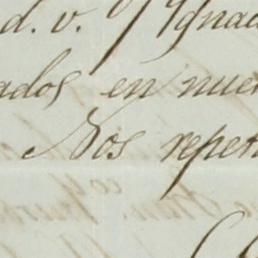 d. v. p/ Ignac
ados en nue
Nos repet